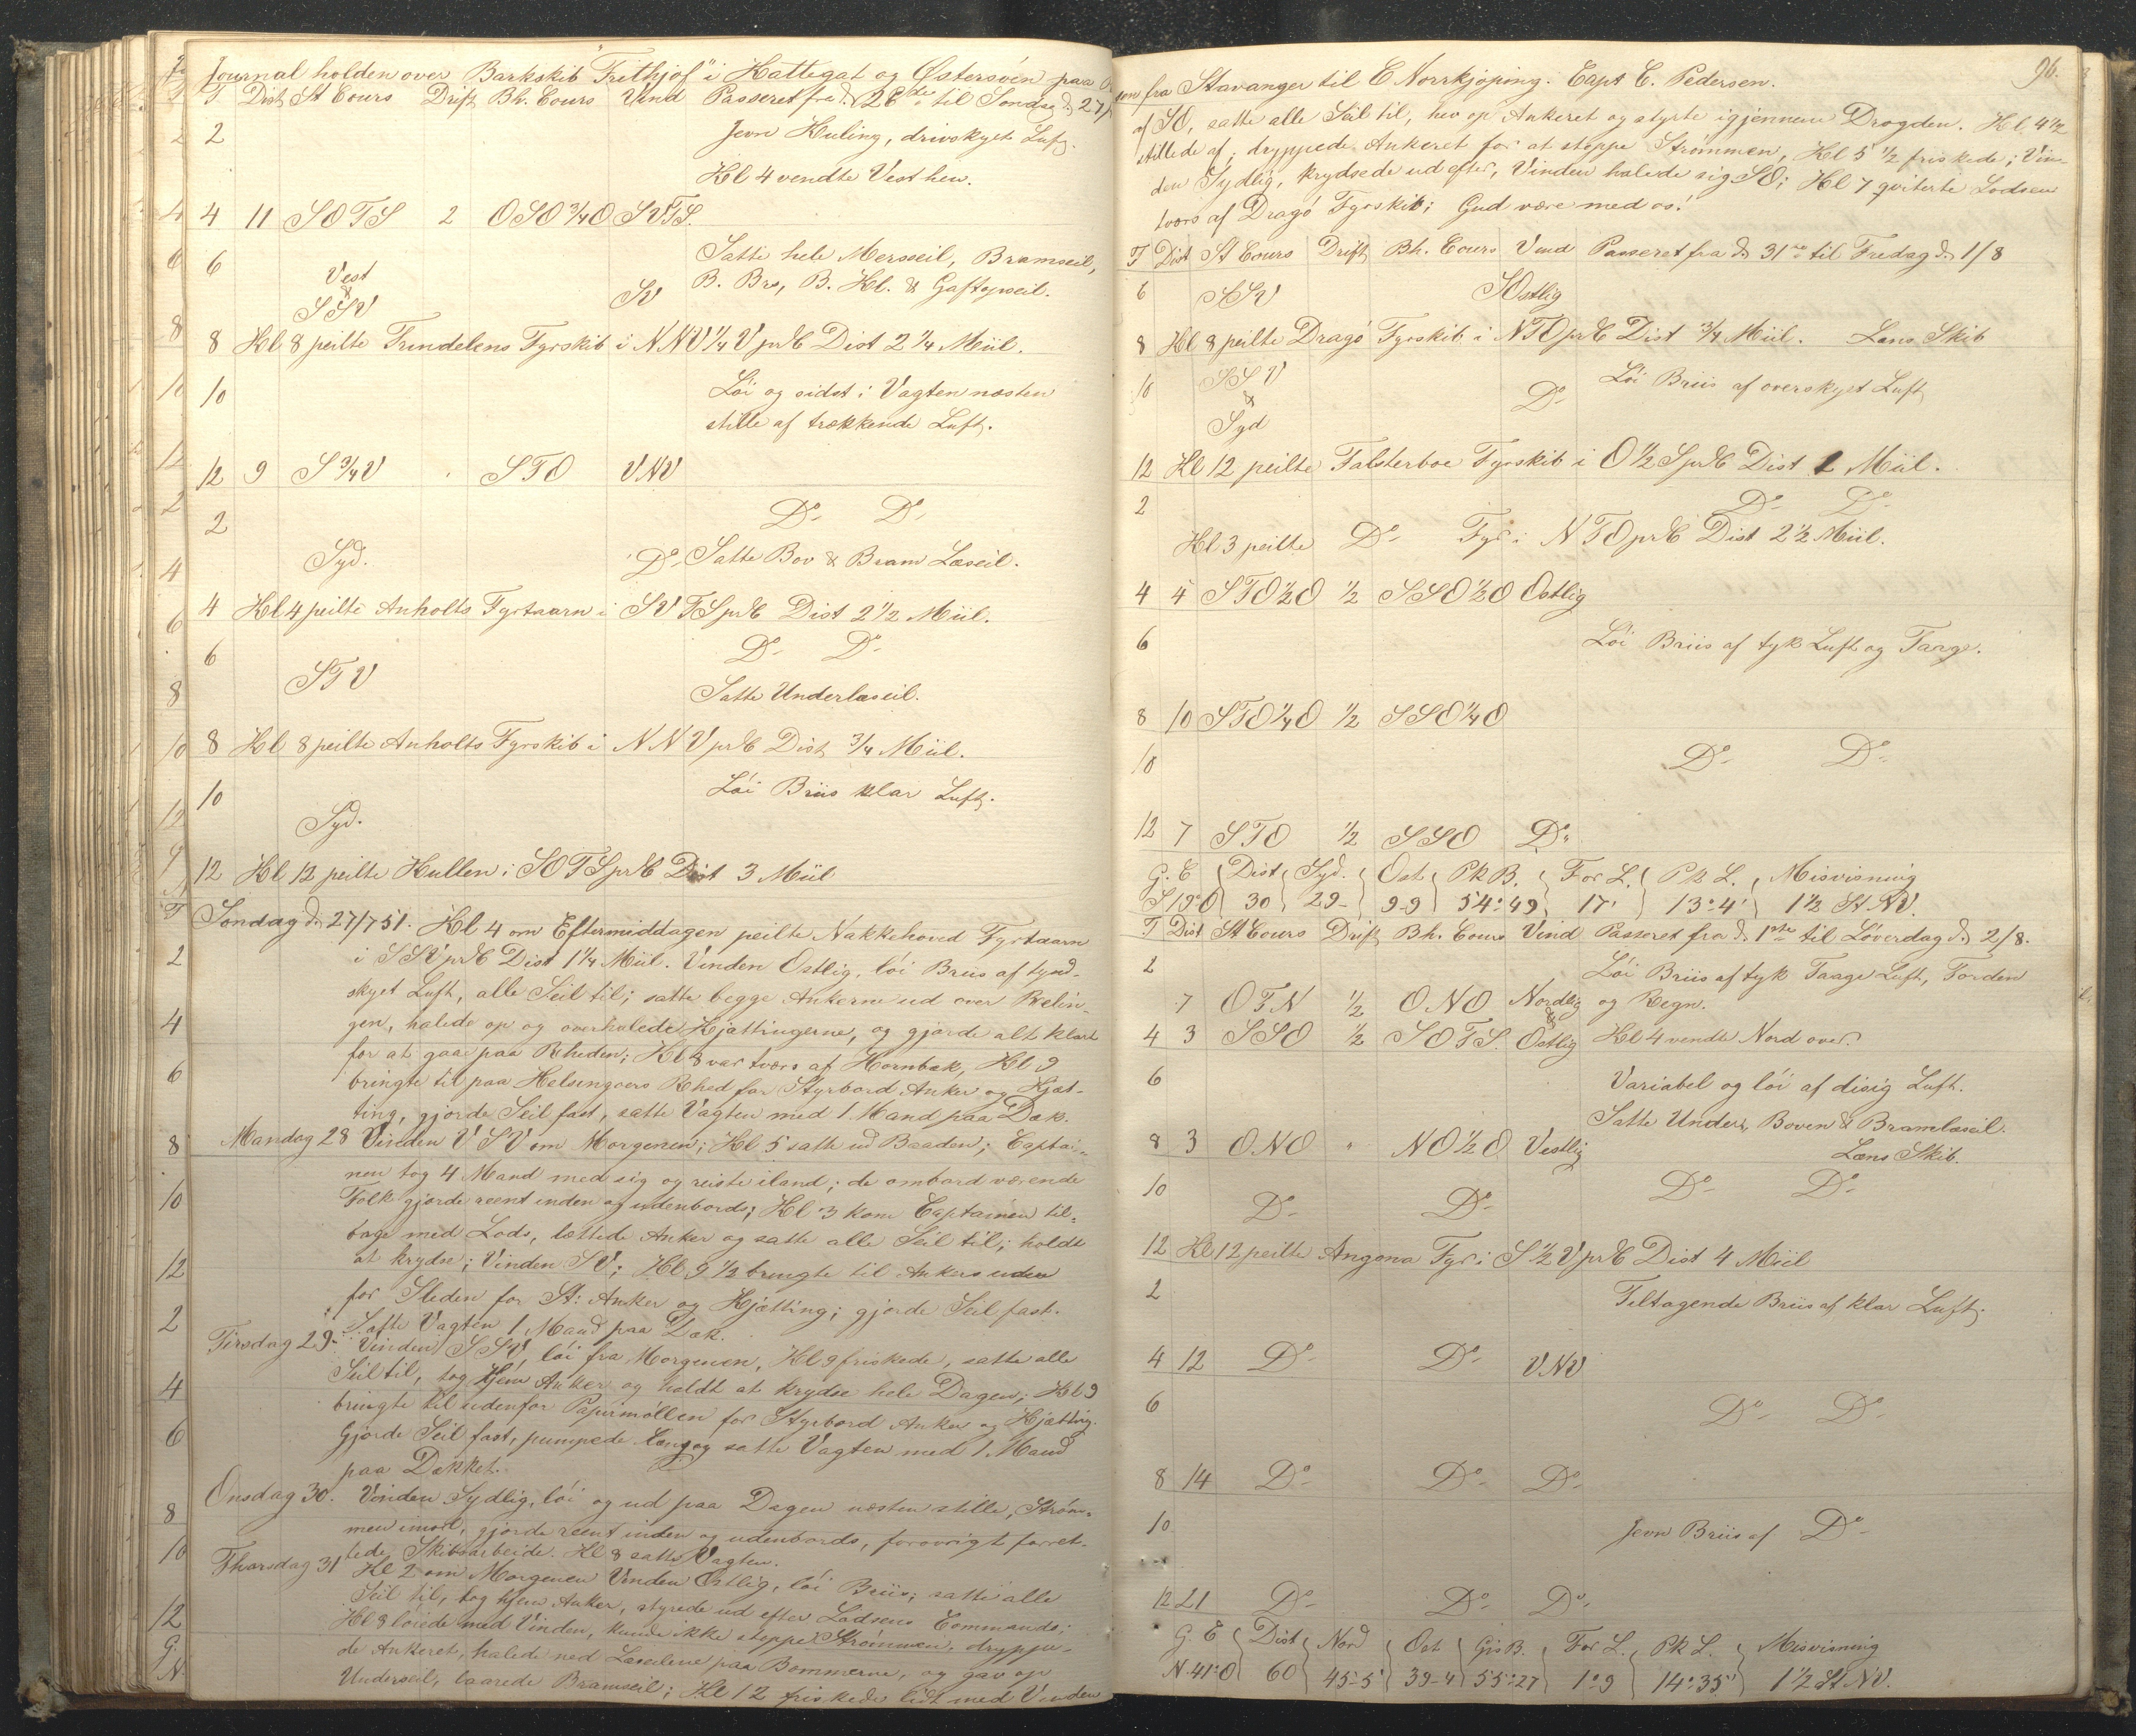 Journal holden over Barkskib "Frithjof" i Kattegat og Østersøen paa
T Dist St Cours Drift Bh. Cours Vind Passeret fra d. 26de til Søndag d. 27/7
2 Jevn Kuling, drivskyet Luft.
Kl 4 vendte Vest hen.
4 11 SOTS 2 OSO 3/4 O SVTS.
6 Satte hele Mersseil, Bramseil,
Vest
&
SSV SV B. Brs, B. Kl. & Gaftopseil.
8 Kl 8 peilte Trindelens Fyrskib i NNV 1/4 V prC Dist 2 1/4 Miil.
10 Løi og sidst i Vagten næsten
stille af trækkende Luft.
12 9 S 3/4 V " STO VNV
2 Do Do
Syd. Do Satte Bov & Bram Læseil.
4 Kl 4 peilte Anholts Fyrtaarn i SVTS prC Dist 2 1/2 Miil.
6 Do Do
STV Satte Underlæseil.
8 Kl 8 peilte Anholts Fyrskib i NNV prC Dist 3/4 Miil.
10 Løi Briis klar Luft.
Syd.
12 Kl 12 peilte Kullen i SOTS prC Dist 3 Miil
Søndag d. 27/7 51. Kl 4 om Eftermiddagen peilte Nakkehoved Fyrtaarn
i SSV prC Dist 1 1/4 Miil. Vinden Ostlig, løi Briis af tynd-
skyet Luft, alle Seil til; satte begge Ankerne ud over Relin-
gen, halede op og overhalede Kjættingerne, og gjorde alt klart
for at gaae paa Rheden; Kl 8 var tværs af Hornbæk, Kl 9
bringte til paa Helsingøers Rhed for Styrbord Anker og Kjæt-
ting, gjorde Seil fast, satte Vagten med 1 Mand paa Dæk.
Mandag 28 Vinden VSV om Morgenen; Kl 5 satte ud Baaden; Captai-
nen tog 4 Mand med sig og reiste iland; de ombord værende
Folk gjorde reent inden og udenbords; Kl 3 kom Captainen til-
bage med Lods, lættede Anker og satte alle Seil til; holdt
at krydse; Vinden SV; Kl 9 1/2 bringte til Ankers uden
for Sleden for St: Anker og Kjætting; gjorde Seil fast.
Satte Vagten 1 Mand paa Dæk.
Tirsdag 29. Vinden SSV, løi fra Morgenen, Kl 9 friskede, satte alle
Seil til, tog hjem Anker og holdt at krydse hele Dagen; Kl 9
bringte til udenfor Papirmøllen for Styrbord Anker og Kjætting.
Gjorde Seil fast, pumpede Læns og satte Vagten med 1 Mand
paa Dækket.
Onsdag 30. Vinden Sydlig, løi og ud paa Dagen næsten stille, Strøm-
men imod, gjorde reent inden og udenbords, forøvrigt forret-
tede Skibsarbeide. Kl 8 satte Vagten.
Thorsdag 31 Kl 2 om Morgenen Vinden Ostlig, løi Briis; satte alle
Seil til, tog hjem Anker, styrede ud efter Lodsens Commando;
Kl 8 løiede med Vinden, kunde ikke stoppe Strømmen, dryppe-
de Ankeret, halede ned Læseilene paa Bommerne, og gav op
Underseil, laarede Bramseil; Kl 12 friskede lidt med Vinden
96.
sen fra Stavanger til E Norrkjøping. Capt C. Pedersen.
af SO, satte alle Seil til, hev op Ankeret og styrte igjennem Drogden. Kl 4 1/2
stillede af; dryppede Ankeret for at stoppe Strømmen, Kl 5 1/2 friskede; Vin-
den Sydlig, krydsede ud efter, Vinden halede sig SO; Kl 7 qviterte Lodsen
tværs af Dragø Fyrskib; Gud være med os!
T Dist St Cours Drift Bh. Cours Vind Passeret fra d. 31te til Fredag d. 1/8
6 SSV SOstlig
8 Kl 8 peilte Dragø Fyrskib i NTO prC Dist 3/4 Miil. Læns Skib
10 SSV Løi Briis af overskyet Luft
& Do
Syd
12 Kl 12 peilte Falsterboe Fyrskib i O 1/2 S prC Dist 1 Miil.
2 Do Do
Kl 3 peilte Do Fyr i NTO prC Dist 2 1/2 Miil.
4 4 STO 1/2 O 1/2 SSO 1/2 O Ostlig
6 Løi Briis af tyk Luft og Taage.
8 10 STO 1/4 O 1/2 SSO 1/4 O
10 Do Do
12 7 STO 1/2 SSO Do
G. C Dist Syd. Ost Pk B. For L. Pk L. Misvisning
S 19° O 30 29- 9-9 54°49 17' 13°4' 1 1/2 St NV.
T Dist St Cours Drift Bh. Cours Vind Passeret fra d. 1ste til Løverdag d. 2/8.
2 Løi Briis af tyk Taage Luft, Torden
7 OTN 1/2 ONO Nordlig og Regn.
&
4 3 SSO 1/2 SOTS. Ostlig Kl 4 vendte Nord over.
6 Variabel og løi af disig Luft.
Satte Under, Boven & Bramlæseil.
8 3 ONO " NO 1/2 O Vestlig Læns Skib.
10 Do Do Do Do
12 Kl 12 peilte Angona Fyr i S 1/2 V prC Dist 4 Miil
2 Tiltagende Briis af klar Luft.
4 12 Do Do VNV
6 Do Do
8 14 Do Do Do
10 Jevn Briis af Do
12 21 Do Do Do
G. C Dist Nord Ost Gis B. For L. Pk L. Misvisning
N 41° O 60 45-5 39-4 55°27 1°9 14°35' 1 1/2 St NV.